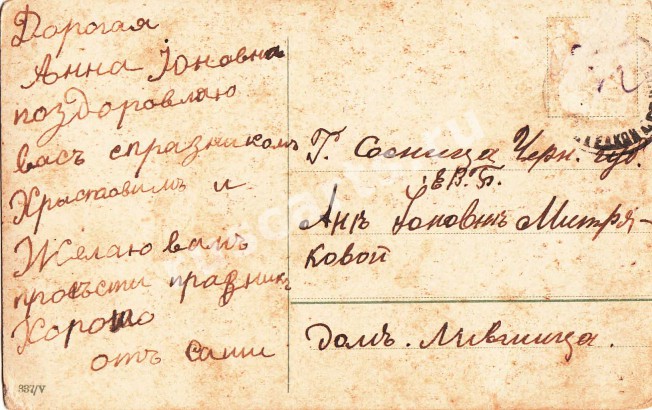 Дорогая
Анна Іоновна
поздоровляю
васъ спразникомъ
Христовимъ и
Желаю вамъ
провѣсти празник
Хорошо
отъ саши
Г. Сосница Черн. губ.
Е.В.Б.
Аннѣ Іоновнѣ Митря-
ковой
Домъ. Лившица.
337/V